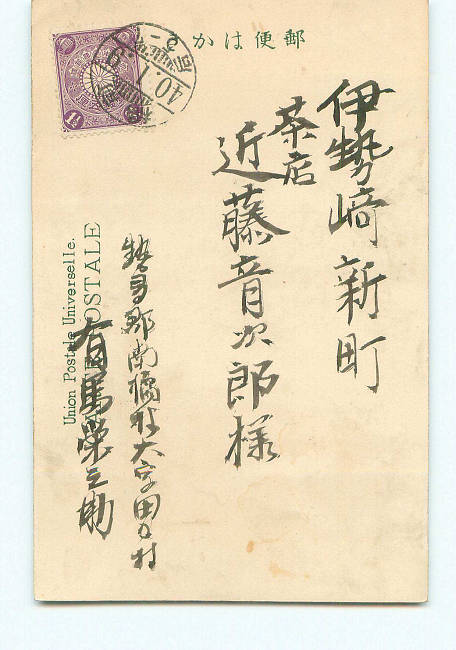 郵便はかき
伊勢崎新町
茶店
近藤音次郎様
勢多郡南橘村大字田口村
有馬栄之助
Union Postale Universelle.
POSTALE
40.1.9
1½